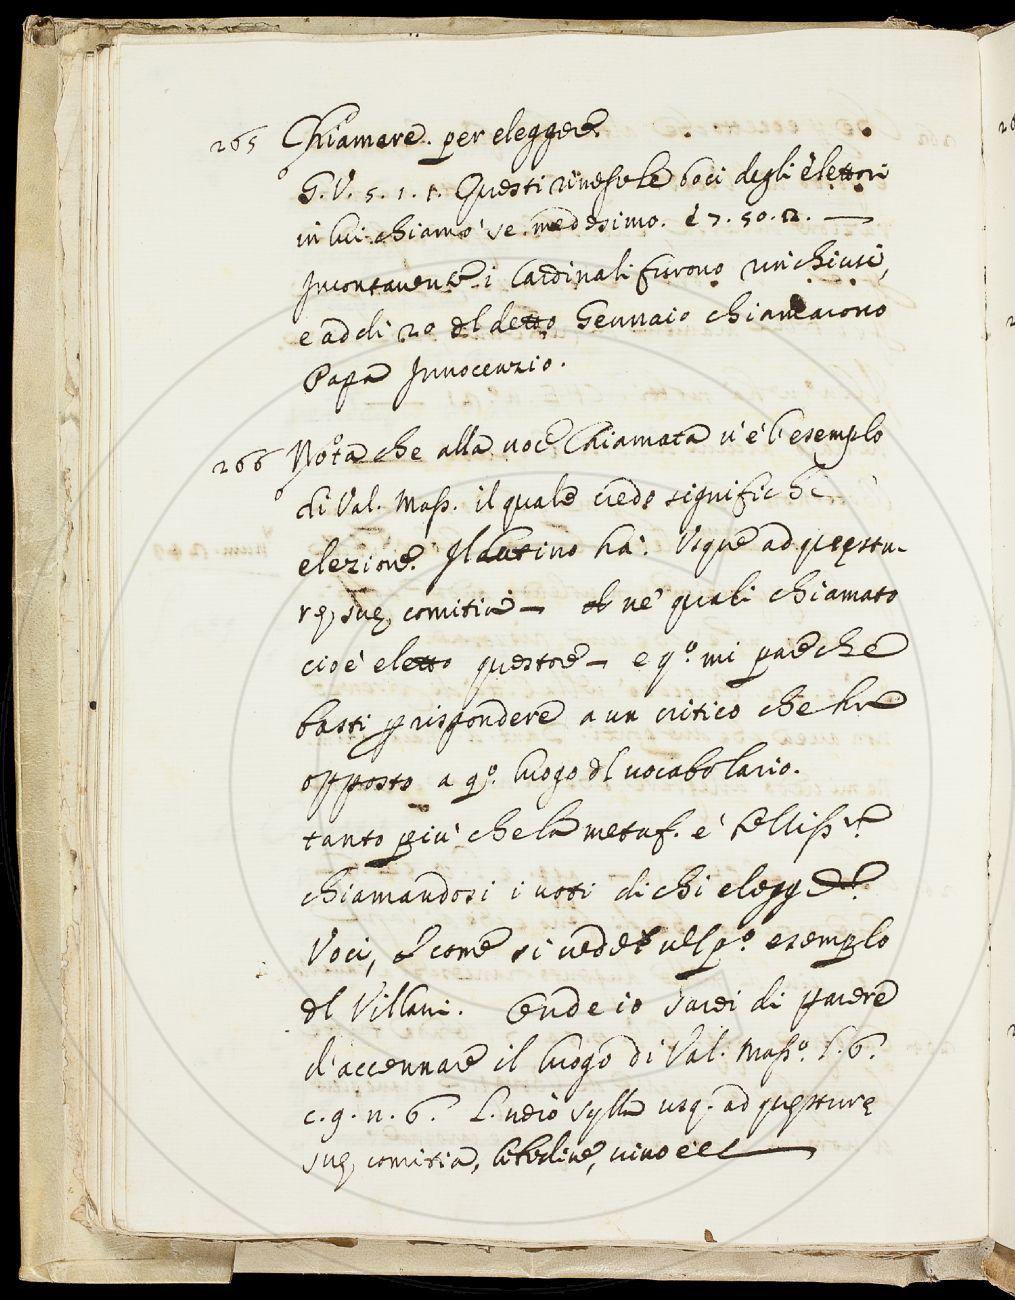 265 Chiamare. per eleggere.
G.V. 5. 1. 1. Questi rimesse le boci degli elettori
in lui chiamò se medesimo. e 7. 50. 12. —
Incontanente i Cardinali furono rinchiusi,
e addi 20 del detto Gennaio chiamarono
Papa Innocenzio.
266 Nota che alla voce Chiamata v'è l'esemplo
di Val. Mass. il quale credo significhi
elezione. Il latino ha. Usque ad quęstu-
rę suę comitia — ne' quali chiamato
cioè eletto questore — e qo. mi pare che
basti p rispondere a un critico che ha
opposto a qo. luogo dl vocabolario.
tanto più che la metaf. è bellissa.
chiamandosi i voti di chi elegge
Voci, come si vede nel po. esemplo
dl Villani. Onde io sarei di parere
d'accennare il luogo di Val. Masso. l. 6.
c. 9. n. 6. L. vero Sylla usq. ad quęsturę
suę comitia, libidine, vino